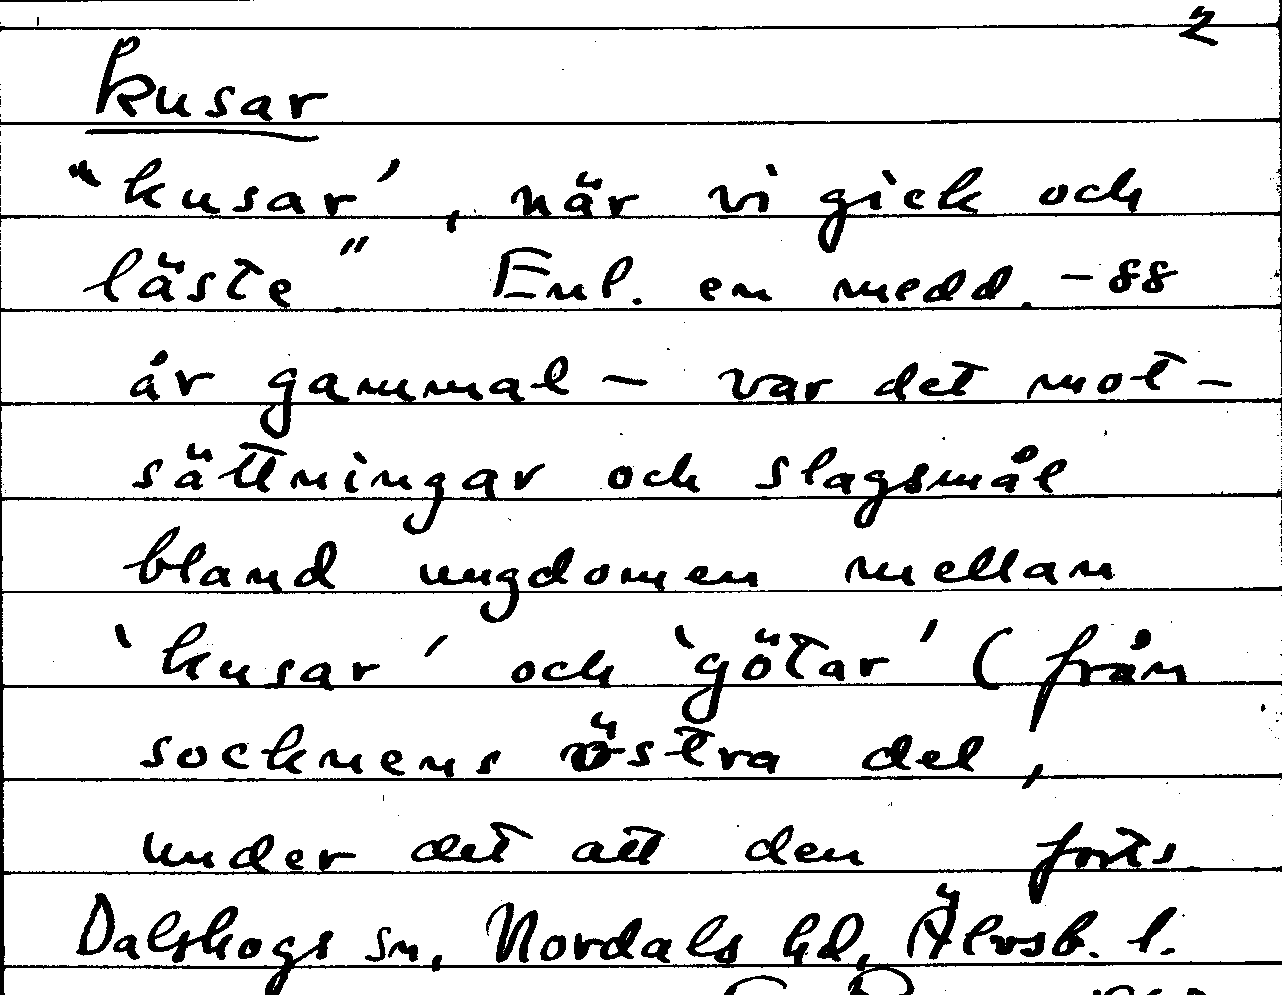 2
kusar
"'kusar', när vi gick och
läste". Enl. en medd. - 88
år gammal - var det mot-
sättningar och slagsmål
bland ungdomen mellan
'kusar' och 'götar' (från
socknens östra del,
under det att den forts
Dalskogs sn, Nordals hd, Älvsb. l.